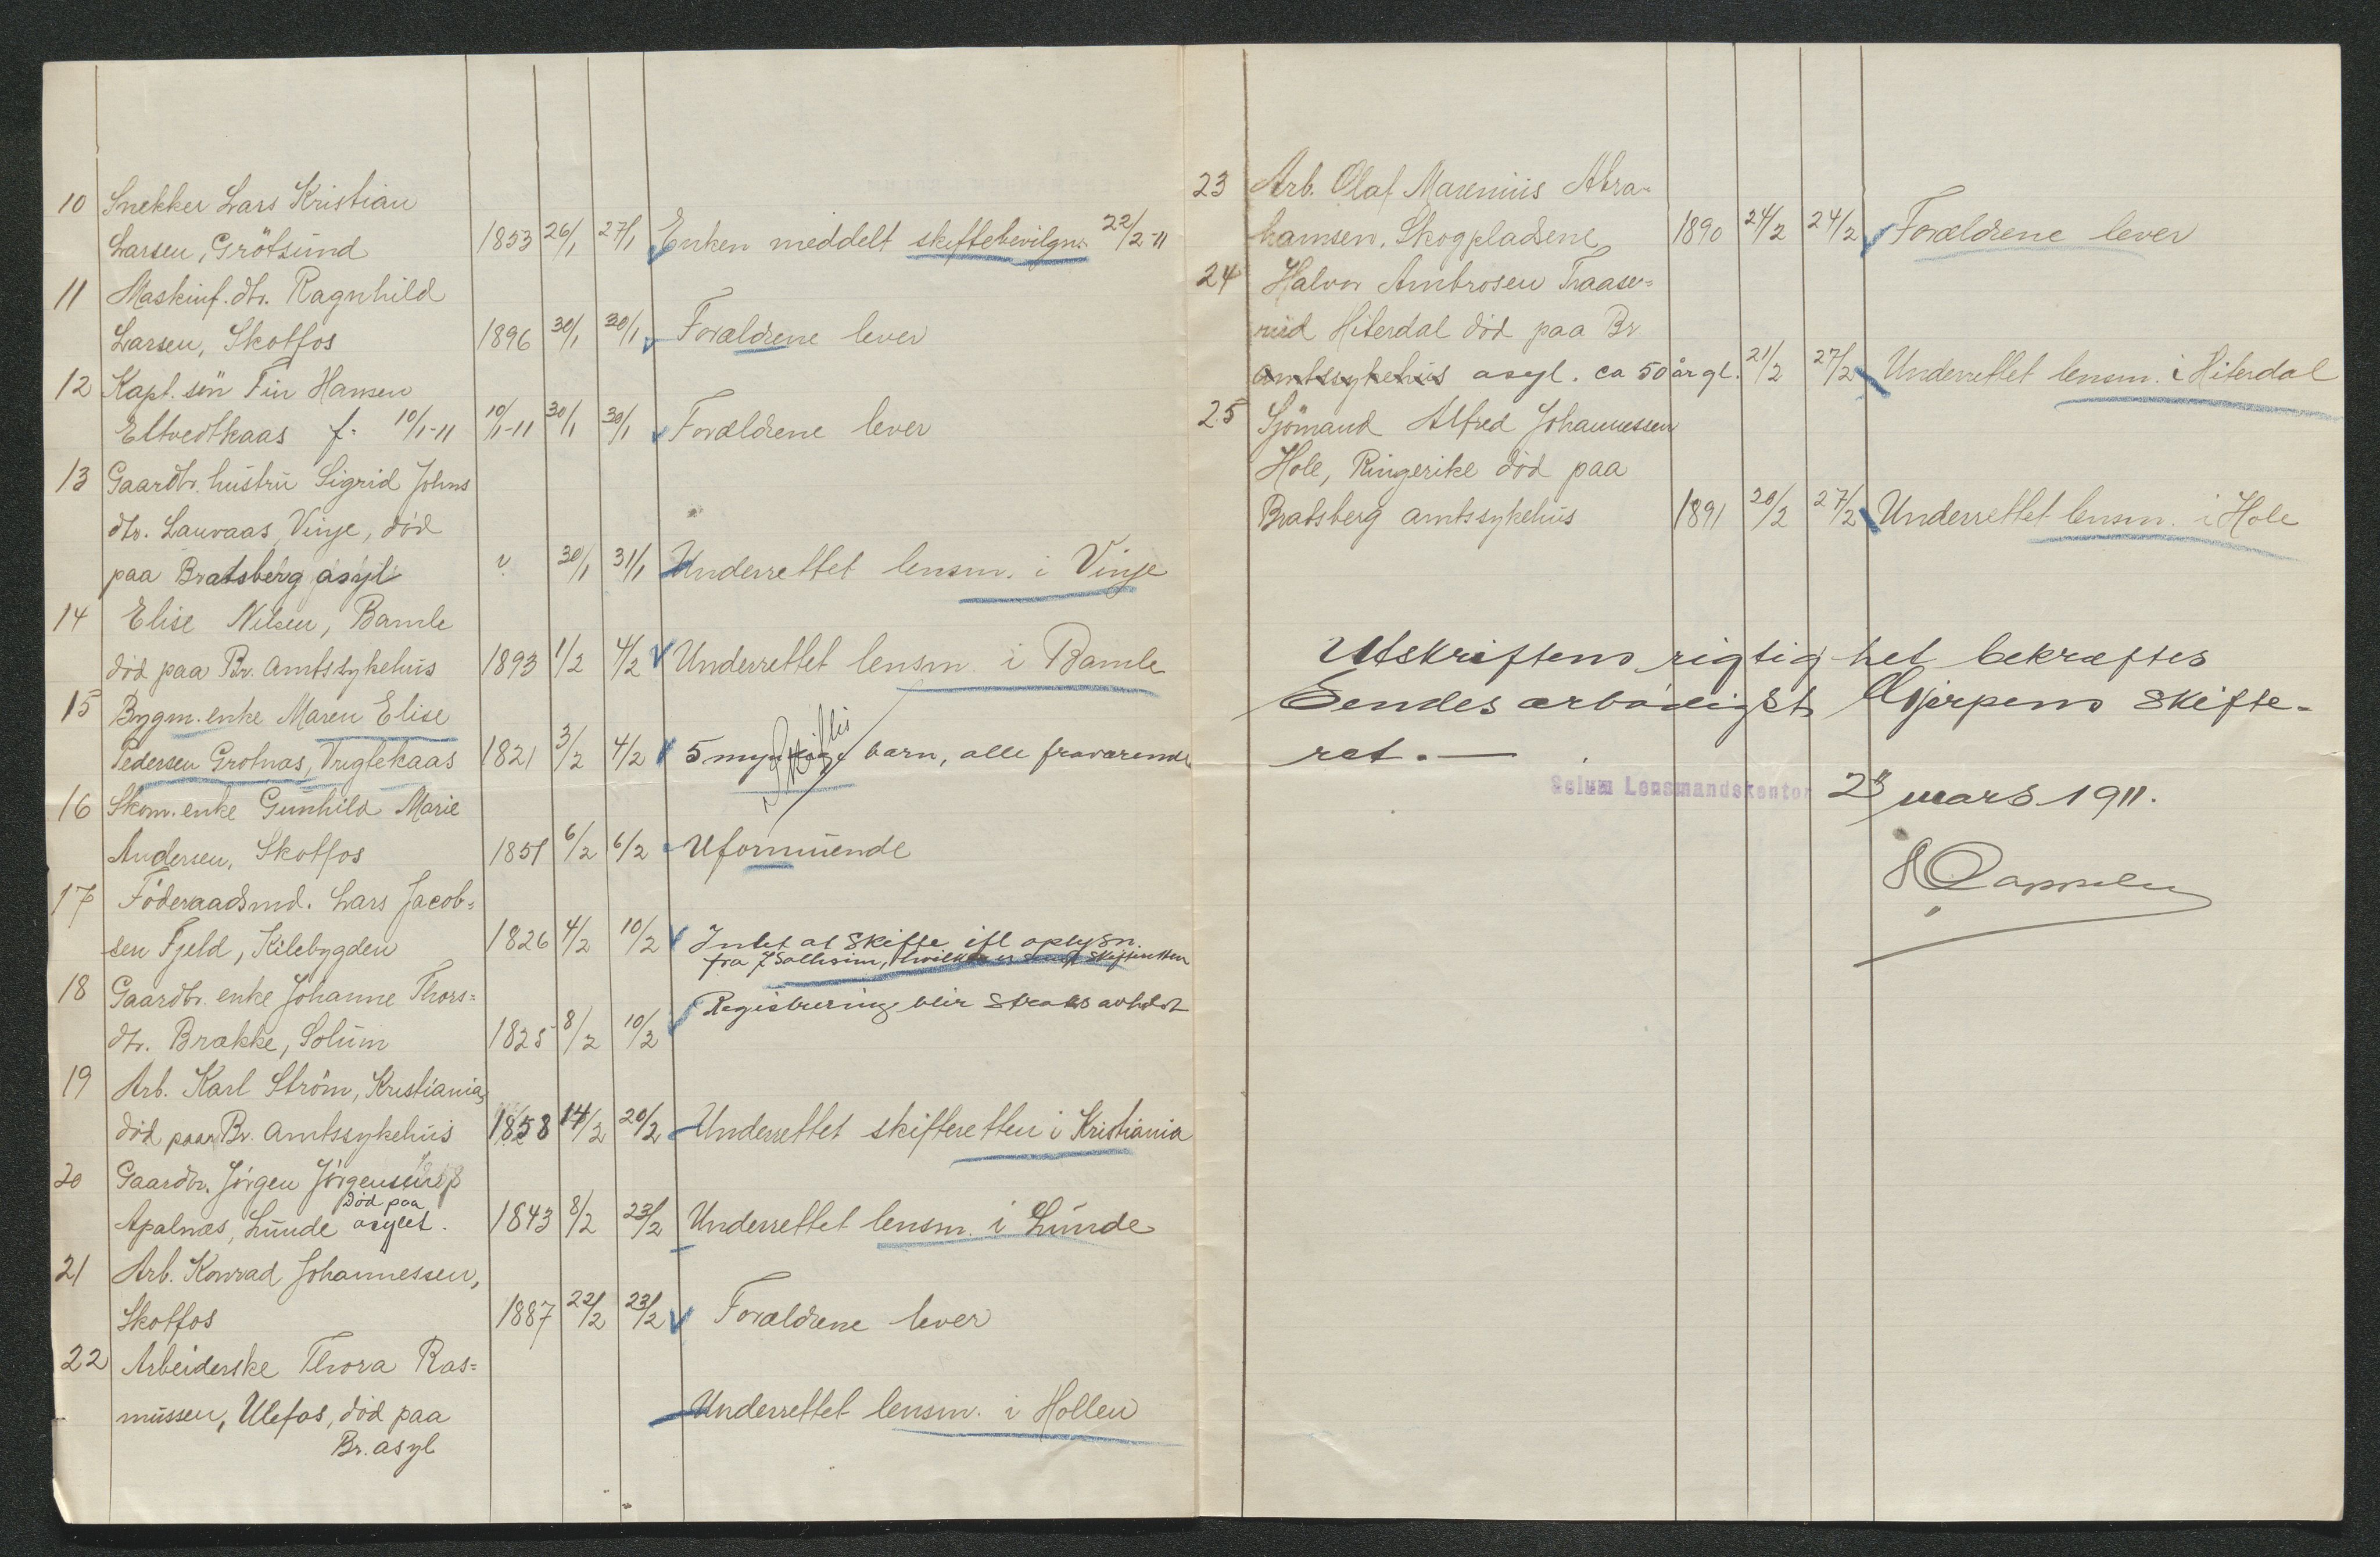 10 Snekker Lars Kristian
Larsen, Grötsund 1853 26/1 27/1 Enken meddelt skiftebevilgn. 22/2-11
11 Maskinf. dtr. Ragnhild
Larsen, Skotfos 1896 30/1 30/1 Forældrene lever
12 Kapt. sön Fin Hansen
Eltvedtkaas f. 10/1-11 10/1-11 30/1 30/1 Forældrene lever
13 Gaardbr. hustru Sigrid Johns
dtr. Lauvaas, Vinje, död
paa Bratsberg asyl ? 30/1 31/1 Underrettet lensm. i Vinje
14 Elise Nilsen, Bamle
död paa Br. amtssykehus 1893 1/2 4/2 Underrettet lensm. i Bamle
15 Bygm. enke Maren Elise
Pedersen Grotnæs, Trugtekaas 1821 3/2 4/2 5 barn, alle fraværende
16 Skom. enke Gunhild Marie
Andersen, Skotfos 1851 6/2 6/2 Uformuende
17 Föderaadsmd. Lars Jacob=
sen Fjeld, Kilebygden 1826 4/2 10/2 Intet at skifte ifl oplysn.
fra J Solheim, skifteretten
18 Gaardbr. enke Johanne Thors=
dtr. Brække, Solum 1825 8/2 10/2 Registrering blir straks avholdt
19 Arb. Karl Ström, Kristiania,
död paa Br. amtssykehus 1858 14/2 20/2 Underrettet skifteretten i Kristiania
20 Gaardbr. Jörgen Jörgensen
död paa
Apalnæs, Lunde asylet. 1843 8/2 23/2 Underrettet lensm. i Lunde
21 Arb. Konrad Johannessen,
Skotfos 1887 22/2 23/2 Forældrene lever
22 Arbeiderske Thora Ras=
mussen, Ulefos, död paa Underrettet lensm. i Hollen
Br. asyl
23 Arb. Olaf Marenius Abra=
hamsen, Skogpladsene 1890 24/2 24/2 Forældrene lever
24 Halvor Ambrosen Traase=
rud Hiterdal död paa Br
amtssykehus asyl. ca 50 år gl. 21/2 27/2 Underrettet lensm. i Hiterdal
25 Sjömand Alfred Johannessen
Hole, Ringerike död paa
Bratsberg amtssykehus 1891 20/2 27/2 Underrettet lensm. i Hole
Utskriftens rigtighet bekræftes
Sendes ærbödigst Gjerpens skifte-
ret.—
Solum Lensmandskontor 2 mars 1911.
Cappelen